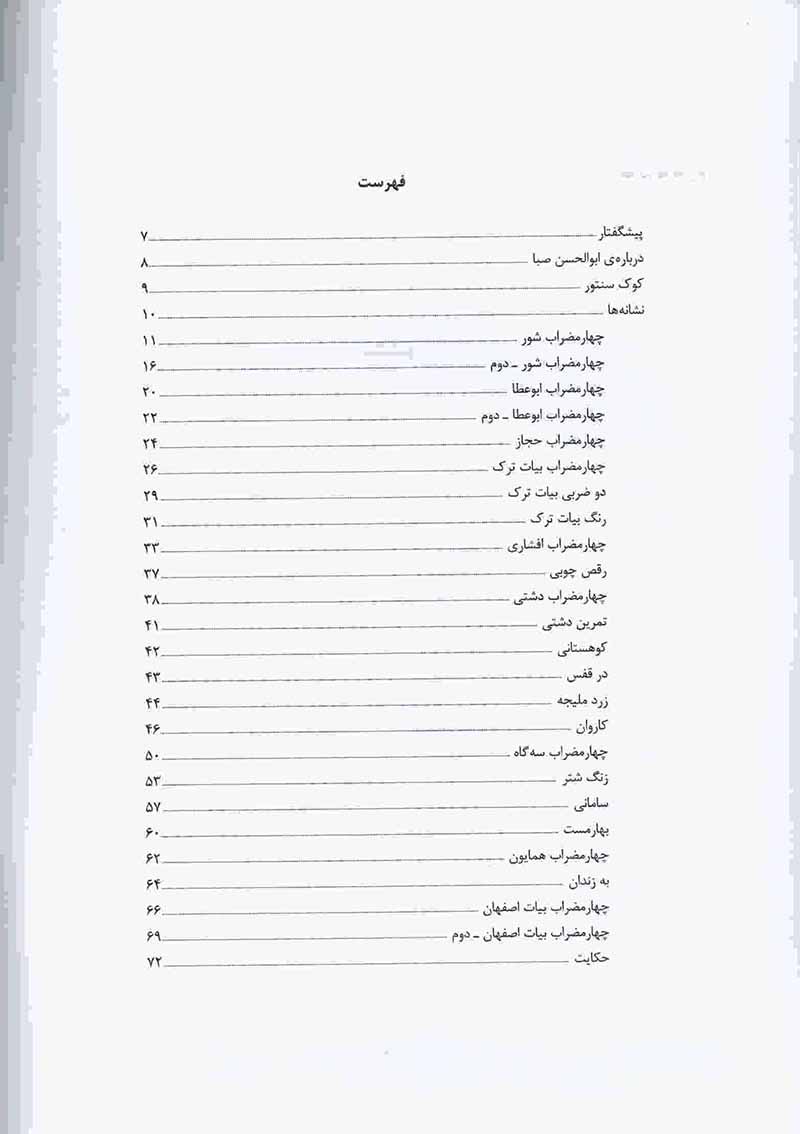 فهرست
پیشگفتار ۷
درباره‌ی ابوالحسن صبا ۸
کوک سنتور ۹
نشانه‌ها ۱۰
چهارمضراب شور ۱۱
چهارمضراب شور ـ دوم ۱۶
چهارمضراب ابوعطا ۲۰
چهارمضراب ابوعطا ـ دوم ۲۲
چهارمضراب حجاز ۲۴
چهارمضراب بیات ترک ۲۶
دو ضربی بیات ترک ۲۹
رنگ بیات ترک ۳۱
چهارمضراب افشاری ۳۳
رقص چوبی ۳۷
چهارمضراب دشتی ۳۸
تمرین دشتی ۴۱
کوهستانی ۴۲
در قفس ۴۳
زرد ملیجه ۴۴
کاروان ۴۶
چهارمضراب سه‌گاه ۵۰
زنگ شتر ۵۳
سامانی ۵۷
بهارمست ۶۰
چهارمضراب همایون ۶۲
به زندان ۶۴
چهارمضراب بیات اصفهان ۶۶
چهارمضراب بیات اصفهان ـ دوم ۶۹
حکایت ۷۲